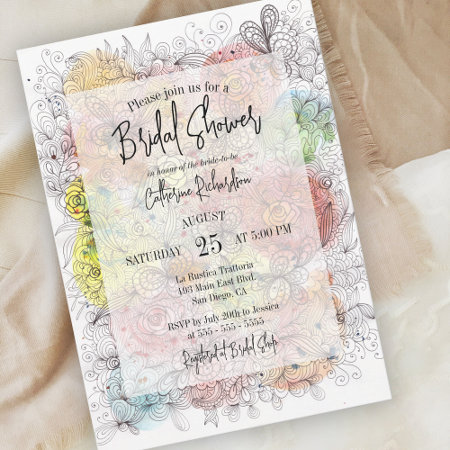 Please join us for a
Bridal Shower
in honor of the bride-to-be
Catherine Richardson
AUGUST
SATURDAY 25 AT 5:00 PM
La Rustica Trattoria
193 Main East Blvd.
San Diego, CA
RSVP by July 20th to Jessica
at 555 - 555 - 5555
Registered at Bridal Shop